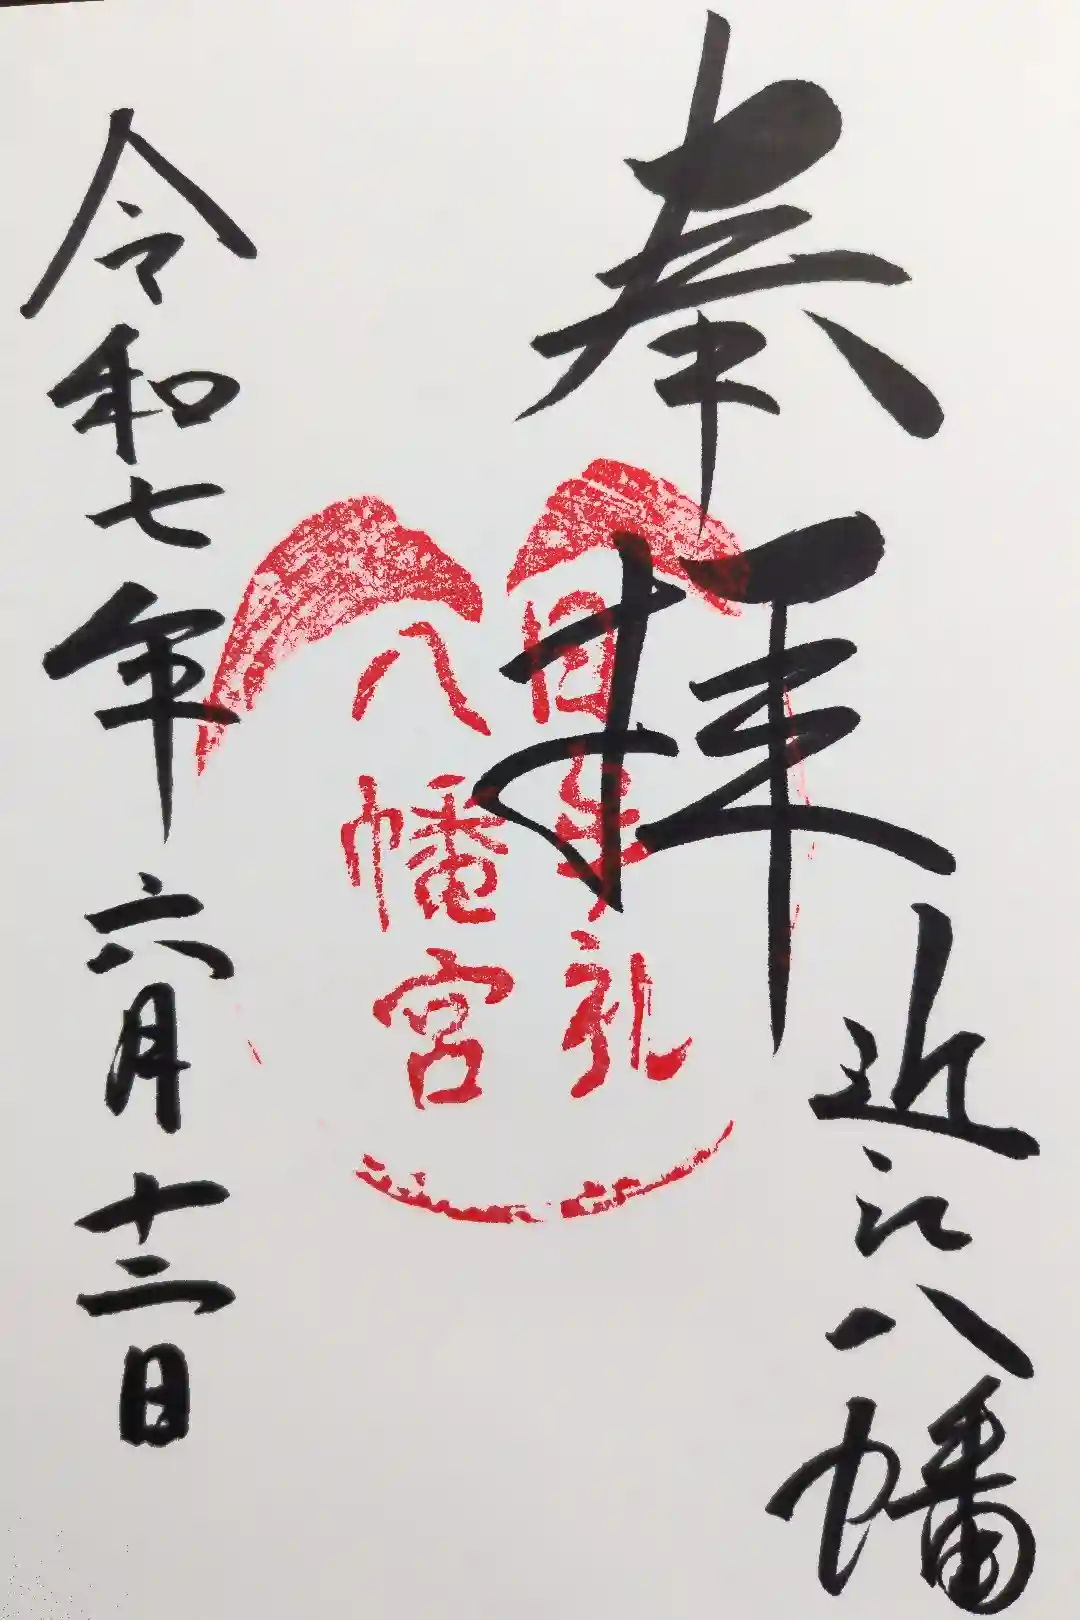 奉拝
近江八幡
日牟礼
八幡宮
令和七年六月十二日